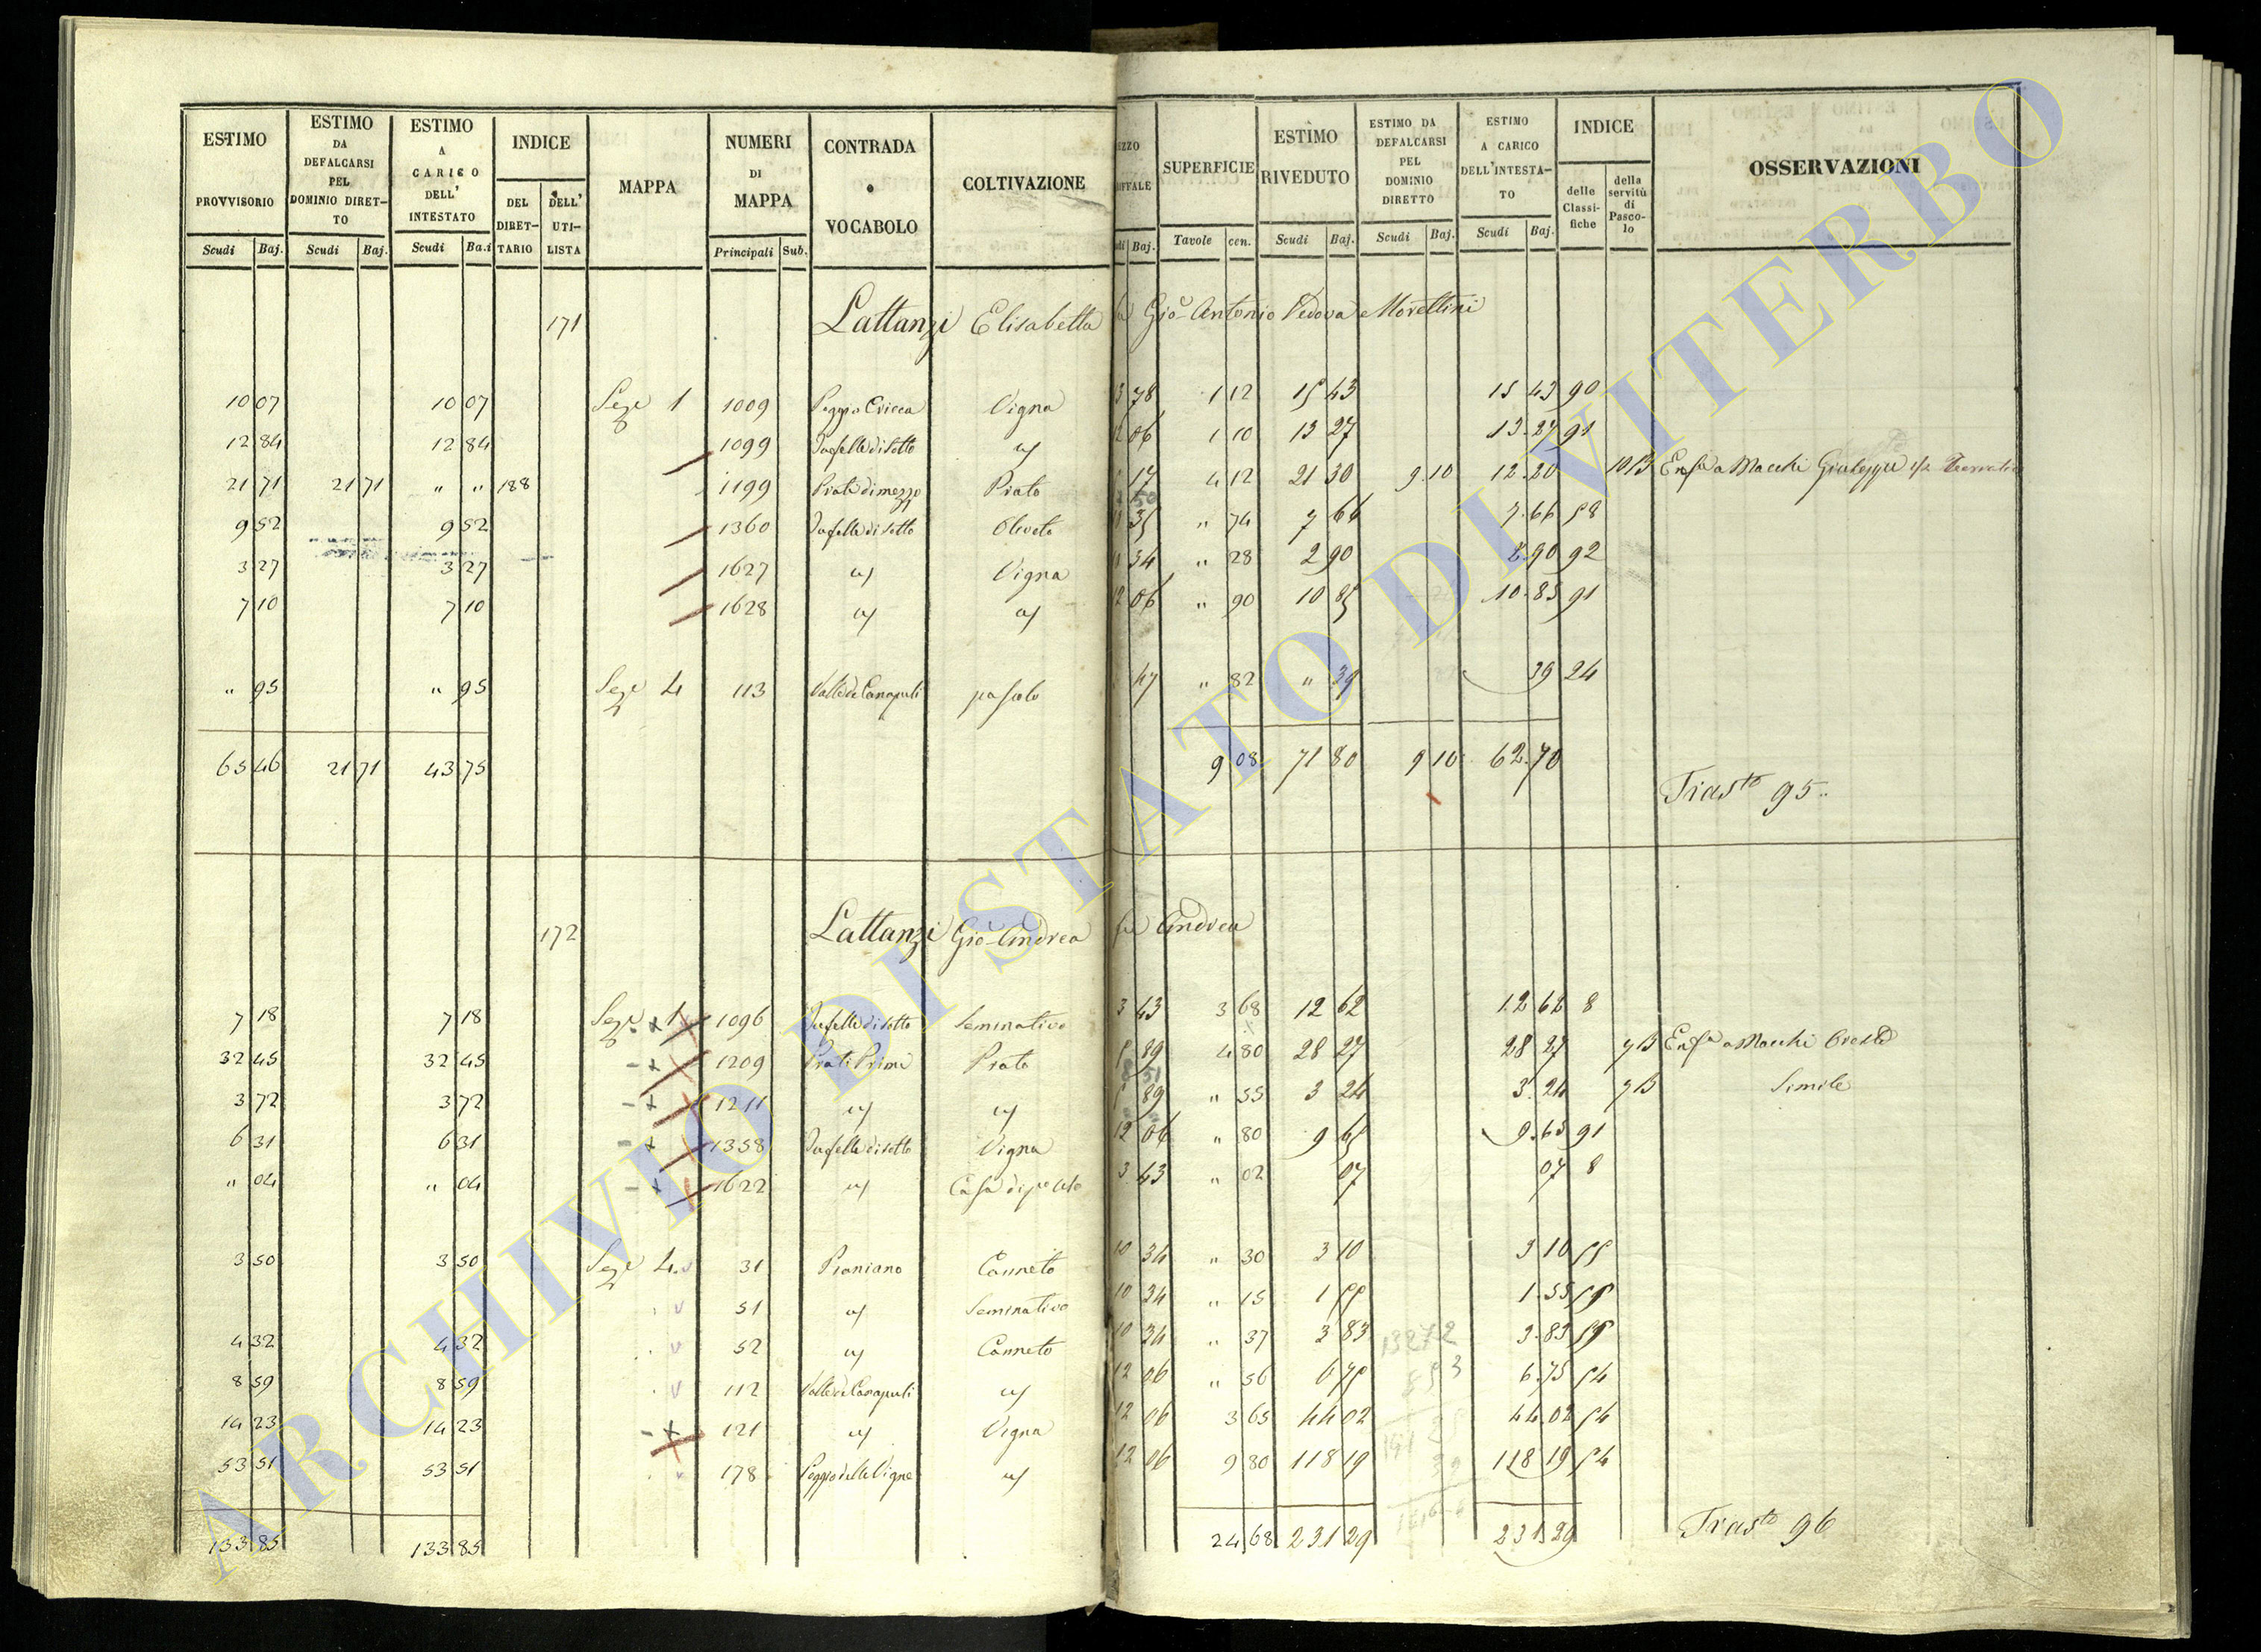 ESTIMO PROVVISORIO Scudi Baj. ESTIMO DA DEFALCARSI PEL DOMINIO DIRETTO Scudi Baj. ESTIMO A CARICO DELL' INTESTATO Scudi Ba.i INDICE DEL DIRETTARIO DELL' UTILISTA MAPPA NUMERI DI MAPPA Principali Sub. CONTRADA o VOCABOLO COLTIVAZIONE Baj. SUPERFICIE Tavole cen. ESTIMO RIVEDUTO Scudi Baj. ESTIMO DA DEFALCARSI PEL DOMINIO DIRETTO Scudi Baj. ESTIMO A CARICO DELL'INTESTATO Scudi Baj. INDICE delle Classifiche della servitù di Pascolo OSSERVAZIONI
171 Lattanzi Elisabetta Gio Antonio Vedova Morettini
10 07 10 07 Sez.e 1 1009 Poggio Vigna 78 1 12 15 43 15 43 90
12 84 12 84 1099 di sotto 12 06 1 10 13 27 13 27 91
21 71 21 71 " " 188 1199 Prato di mezzo Prato 17 4 12 21 30 9 10 12 20 10 B Enf.a a Macchi Giuseppe
9 52 9 52 1360 di sotto Oliveto 35 " 74 7 66 7 66 58
3 27 3 27 1627 Vigna 34 " 28 2 90 2 90 92
7 10 7 10 1628 12 06 " 90 10 85 10 85 91
" 95 " 95 Sez.e 4 113 Valle de Canapuli pascolo 47 " 82 " 39 39 24
65 46 21 71 43 75 9 08 71 80 9 10 62 70
Trasto 95
172 Lattanzi Gio Andrea fu Andrea
7 18 7 18 Sez.e 1 1096 di sotto Seminativo 3 43 3 68 12 62 12 62 8
32 45 32 45 1209 Prati Primi Prato 5 89 4 80 28 27 28 27 7 B Enf.a a Macchi Oreste
3 72 3 72 1211 5 89 " 55 3 24 3 24 7 B Simile
6 31 6 31 1358 di sotto Vigna 12 06 " 80 9 65 9 65 91
" 04 " 04 1622 Casa 3 43 " 02 07 07 8
3 50 3 50 Sez.e 4 31 Pianiano Canneto 10 34 " 30 3 10 3 10 55
51 Seminativo 10 34 " 15 1 55 1 55 55
4 32 4 32 52 Canneto 10 34 " 37 3 83 3 83 55
8 59 8 59 112 Valle de Canapuli 12 06 " 56 6 75 6 75 54
14 23 14 23 121 Vigna 12 06 3 65 44 02 44 02 54
53 51 53 51 178 Poggio delle Vigne 12 06 9 80 118 19 118 19 54
133 85 133 85 24 68 231 29 231 29
Trasto 96
ARCHIVIO DI STATO DI VITERBO